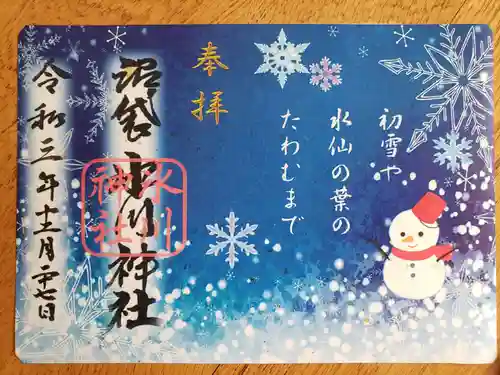 初雪や
水仙の葉の
たわむまで
奉拝
沼袋氷川神社
氷川
神社
令和三年十二月二十七日